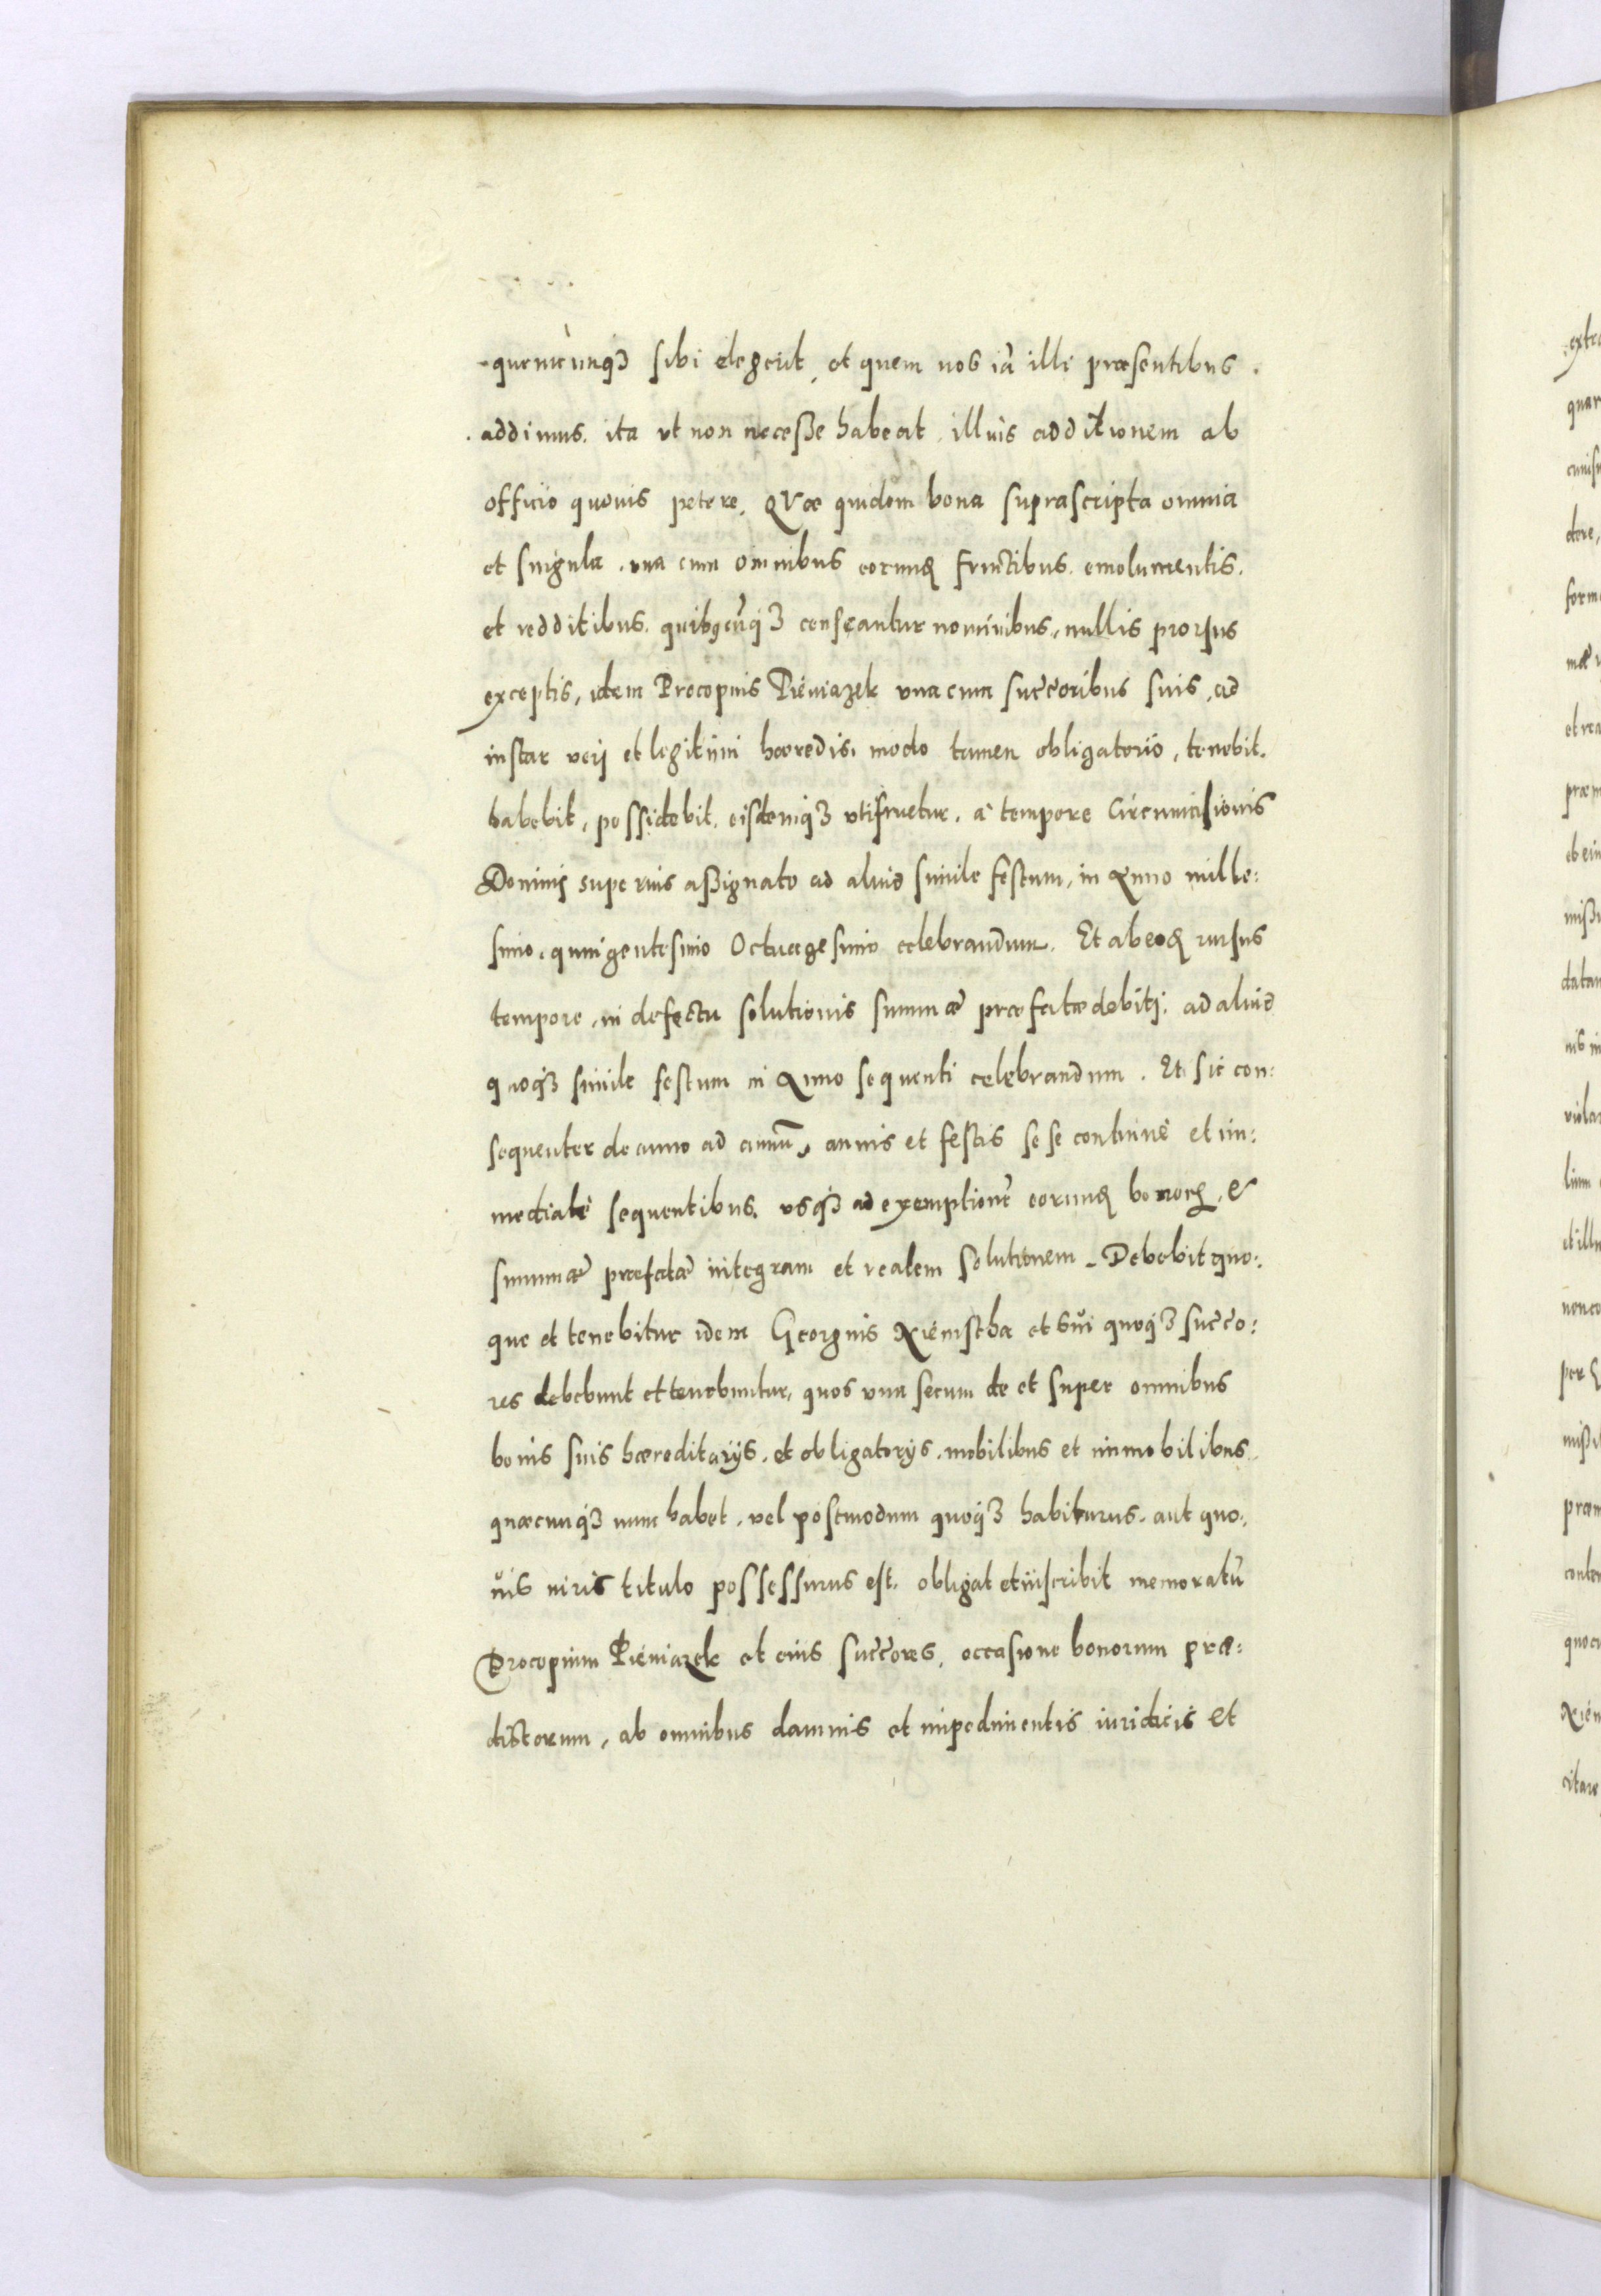 quemcunqꝫ sibi elegerit, et quem nos iã illi præsentibus.
addimus. ita vt non necesße habeat, illius additionem ab
officio quouis petere. QVæ quidem bona suprascripta omnia
et singula, vna cum omnibus eorunđ fructibus, emolumentis,
et redditibus, quibꝯcũqꝫ censeantur nominibus, nullis prorsus
exceptis, idem Procopius Pieniazek vna cum succ̃oribus suis, ad
instar verj et legitimi hæredis, modo tamen obligatorio, tenebit,
habebit, possidebit, eisdemqꝫ vtifruetur, à tempore Circumcisionis
Dominj superius asßignato ad aliud simile festum, in Anno mille:
simo, quingentesimo Octuagesimo celebrandum. Et ab eođ rursus
tempore, in defectu solutionis summæ præfatæ debitj, ad aliud
quoqꝫ simile festum in Anno sequenti celebrandum. Et sic con:
sequenter de anno ad annũ, annis et festis se se continuè et im:
mediatè sequentibus, vsqꝫ ad exemptionẽ eorunđ bonoꝝ, &
summæ præfatæ integram et realem solutionem. Debebit quo:
que et tenebitur idem Georgius Niemstha et sui quoqꝫ succ̃o:
res debebunt et tenebuntur, quos vna secum de et super omnibus
bonis suis hæreditarijs, et obligatorijs, mobilibus et immobilibus
quæcunqꝫ nunc habet, vel postmodum quoqꝫ habiturus, aut quo:
uis iuris titulo possessurus est, obligat et inscribit memoratũ
Procopium Pieniazek et eius succ̃ores, occasione bonorum præ:
dictorum, ab omnibus damnis et impedimentis iuridicis et